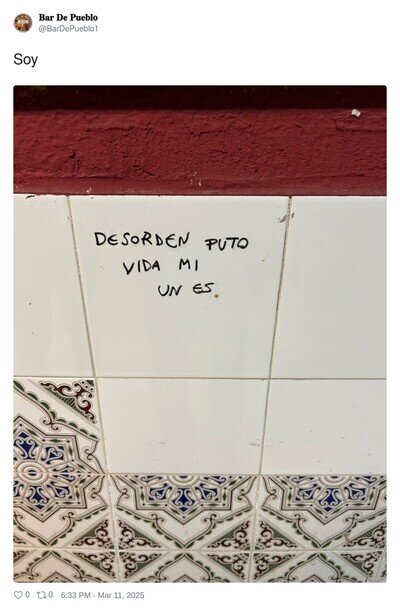 Bar De Pueblo
@BarDePueblo1
Soy
DESORDEN PUTO
VIDA MI
UN ES
0 0 6:33 PM - Mar 11, 2025